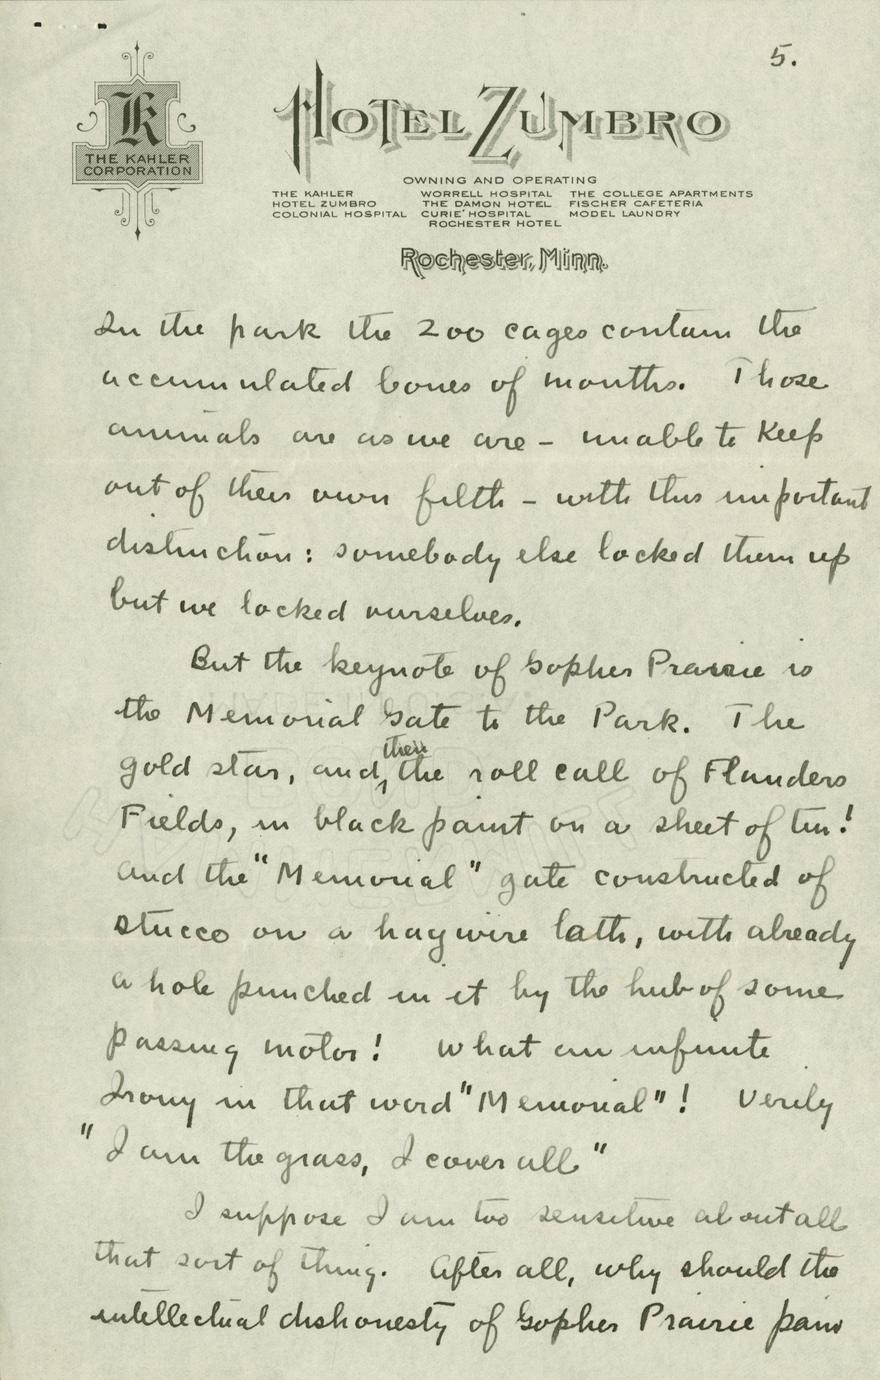 5.
K
THE KAHLER
CORPORATION
HOTEL ZUMBRO
OWNING AND OPERATING
THE KAHLER WORRELL HOSPITAL THE COLLEGE APARTMENTS
HOTEL ZUMBRO THE DAMON HOTEL FISCHER CAFETERIA
COLONIAL HOSPITAL CURIE HOSPITAL MODEL LAUNDRY
ROCHESTER HOTEL
Rochester, Minn.
In the park the 200 cages contain the
accumulated bones of months. Those
animals are as we are - unable to keep
out of their own filth - with this important
distinction: somebody else locked them up
but we locked ourselves.
But the keynote of Gopher Prairie is
the Memorial Gate to the Park. The
gold star, and, then the roll call of Flanders
Fields, in black paint on a sheet of tin!
And the "Memorial" gate constructed of
stucco on a haywire lath, with already
a hole punched in it by the hub of some
passing motor! What an infinite
Irony in that word "Memorial"! Verily
"I am the grass, I cover all"
I suppose I am too sensitive about all
that sort of thing. After all, why should the
intellectual dishonesty of Gopher Prairie pain